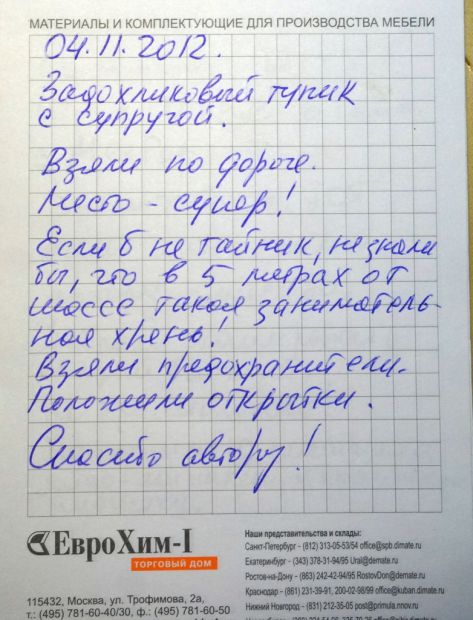 МАТЕРИАЛЫ И КОМПЛЕКТУЮЩИЕ ДЛЯ ПРОИЗВОДСТВА МЕБЕЛИ
04.11.2012.
Задохликовый тупик
с супругой.
Взяли по дороге.
Место - супер!
Если б не тайник, не знали
бы, что в 5 метрах от
шоссе такая заниматель-
ная хрень!
Взяли предохранители.
Положили открытки.
Спасибо автору!
ЕвроХим-I
ТОРГОВЫЙ ДОМ
115432, Москва, ул. Трофимова, 2а,
т.: (495) 781-60-40/30, ф.: (495) 781-60-50
Наши представительства и склады:
Санкт-Петербург - (812) 313-05-53/54 office@spb.dimate.ru
Екатеринбург - (343) 378-31-94/95 Ural@demate.ru
Ростов-на-Дону - (863) 242-42-94/95 RostovDon@demate.ru
Краснодар - (861) 231-39-91, 200-02-98/99 office@kuban.dimate.ru
Нижний Новгород - (831) 212-35-05 post@primula.nnov.ru